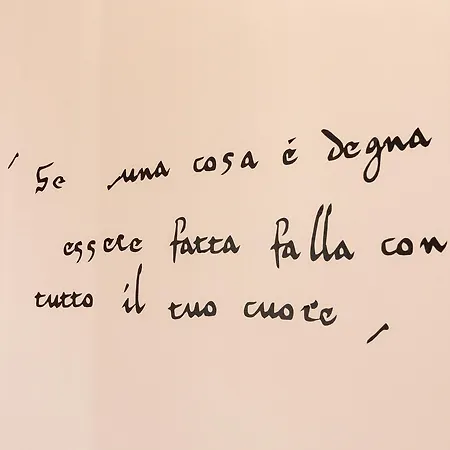 ' Se una cosa é degna
essere fatta falla con
tutto il tuo cuore '